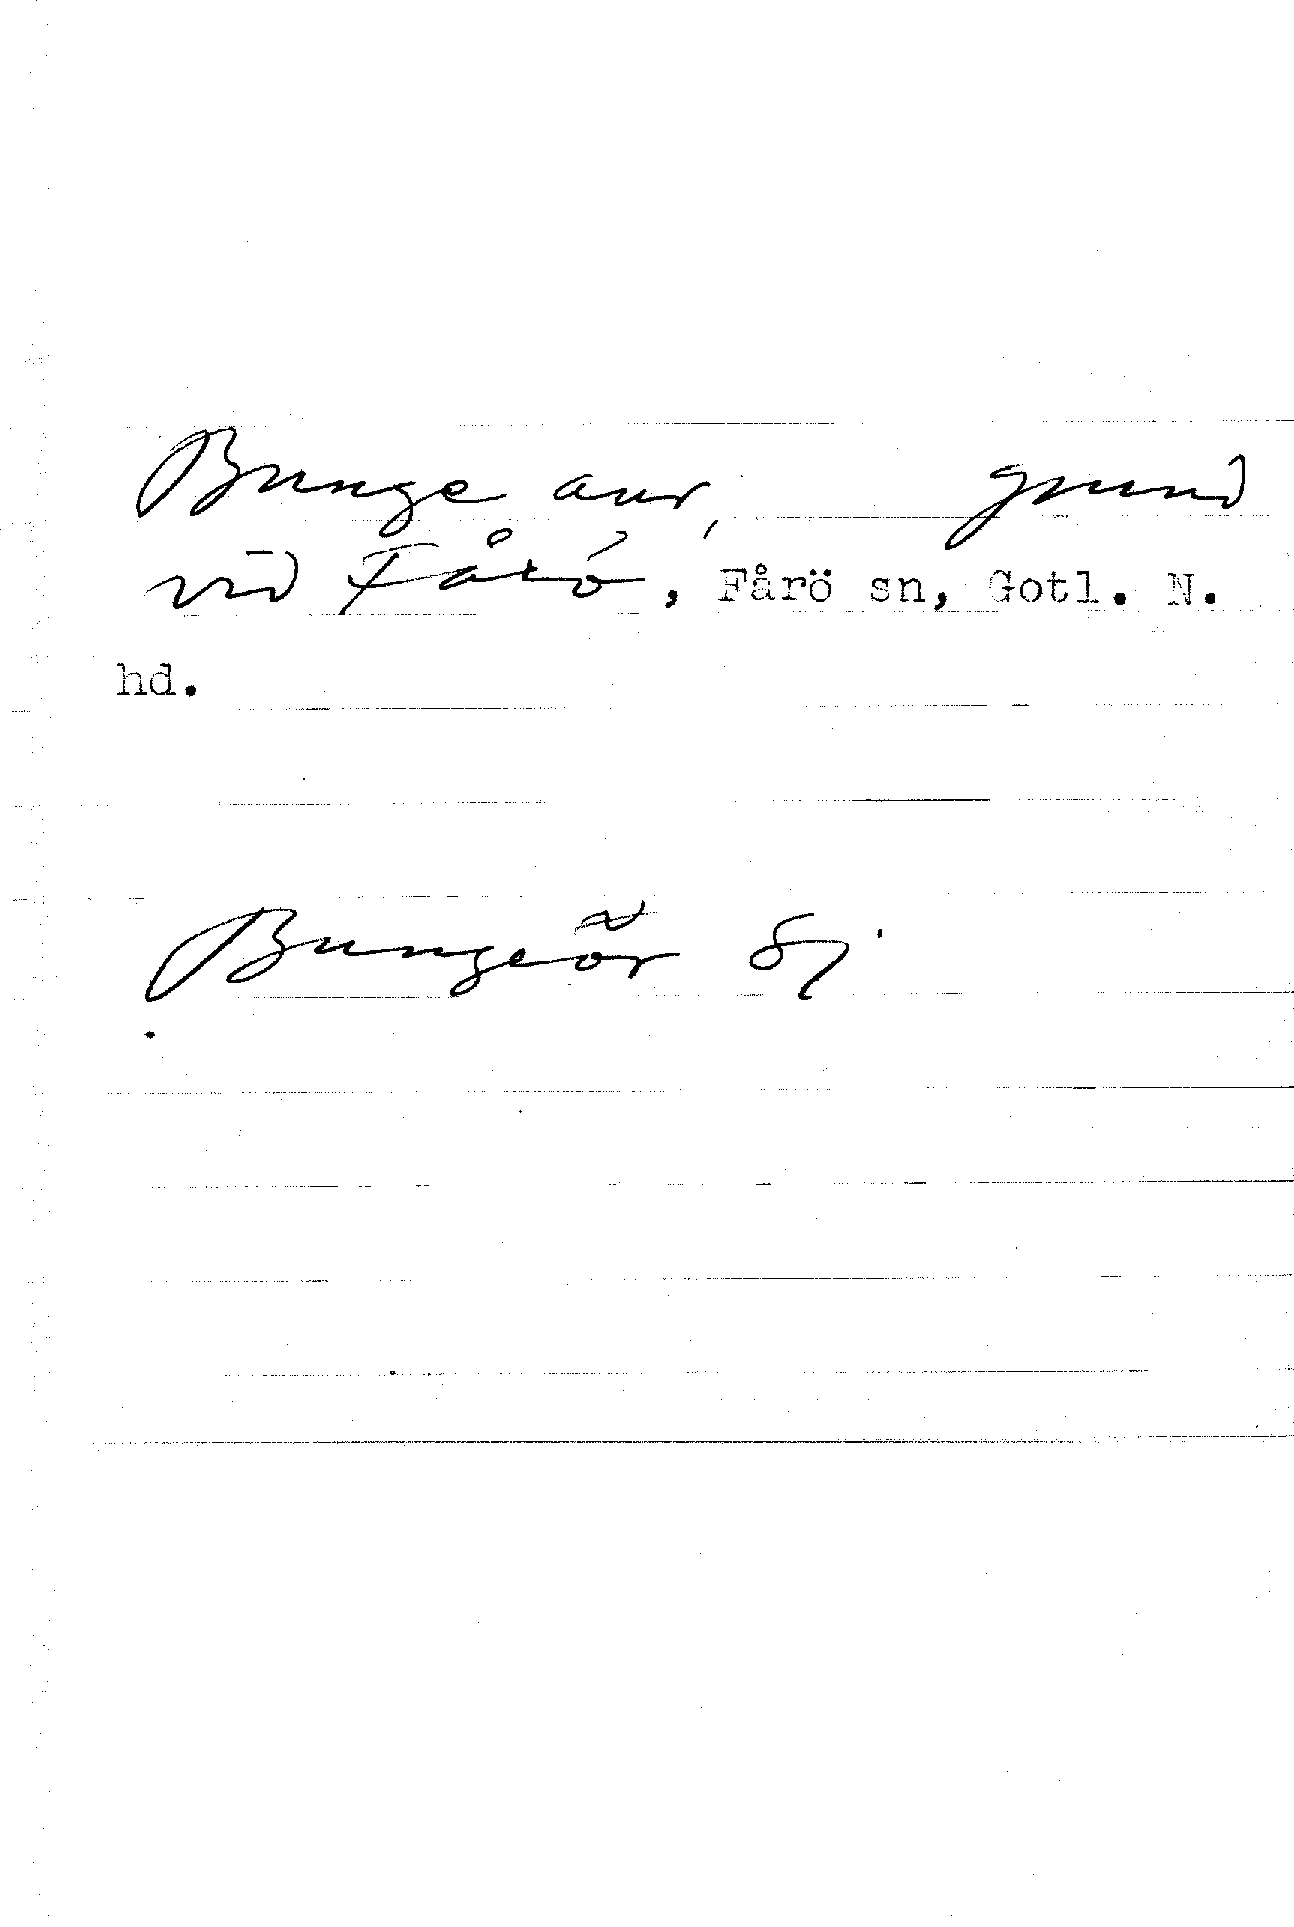 Bunge aur, grund
vid Fårö, Fårö sn, Gotl. N.
hd.
Bungeör Sj.